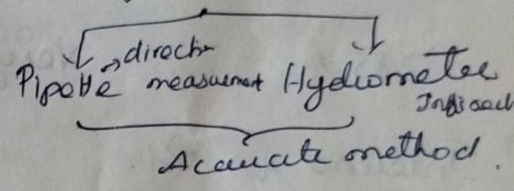 direct
Pipette measurement Hydrometer
Indirect
Accurate method.